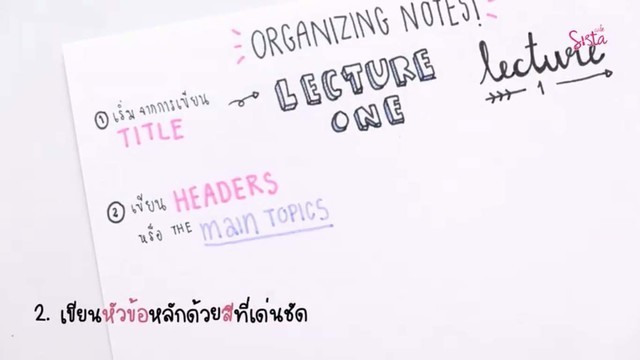 ORGANIZING NOTES!
Sista
① เริ่มจากการเขียน
TITLE
LECTURE
ONE
lecture
1
② เขียน HEADERS
หรือ THE main TOPICS
2. เขียนหัวข้อหลักด้วยสีที่เด่นชัด